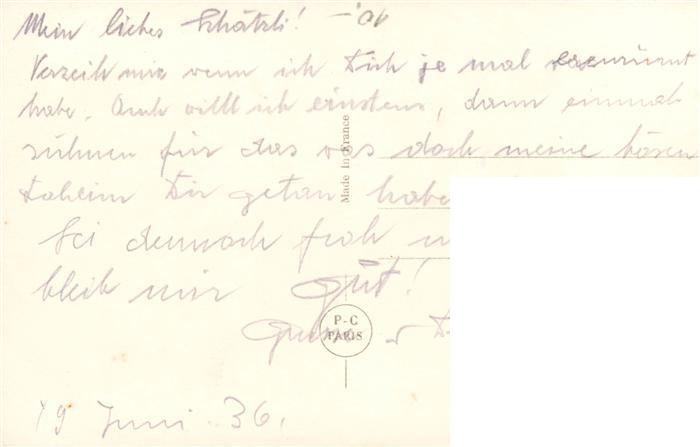 Mein liebes Schätzli! 10.-
Verzeih mir wenn ich Dich je mal erzürnt
habe. Auch will ich einstens, dann einmal
sühnen für das was doch meine bösen
Daheim Dir getan habe
Sei dennoch froh
bleib mir gut!
19 Juni 36.
Made in France
P-C
PARIS